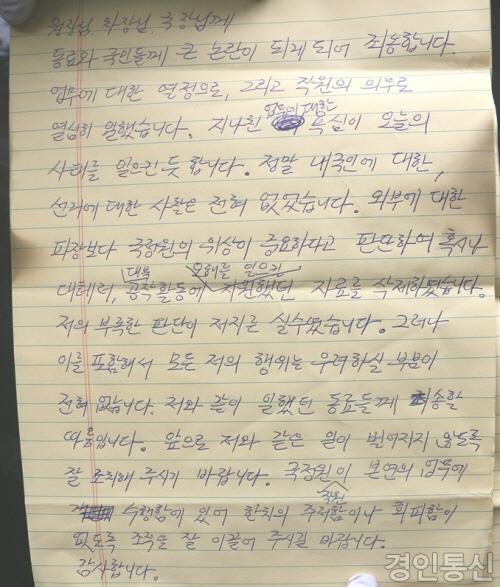 원장님, 차장님, 국장님께
동료와 국민들께 큰 논란이 되게 되어 죄송합니다.
업무에 대한 열정으로, 그리고 직원의 의무로
열심히 일했습니다. 지나친 업무에 대한 욕심이 오늘의
사태를 일으킨 듯 합니다. 정말 내국인에 대한,
선거에 대한 사찰은 전혀 없었습니다. 외부에 대한
파장보다 국정원의 위상이 중요하다고 판단하여 혹시나
대테러, 대북 공작활동에 오해를 일으킨 지원했던 자료를 삭제하였습니다.
저의 부족한 판단이 저지른 실수였습니다. 그러나
이를 포함해서 모든 저의 행위는 우려하실 부분이
전혀 없습니다. 저와 같이 일했던 동료들께 죄송할
따름입니다. 앞으로 저와 같은 일이 벌어지지 않도록
잘 조치해 주시기 바랍니다. 국정원이 본연의 업무에
수행함에 있어 한치의 주저함이나 회피함이
없도록 조직을 잘 이끌어 주시길 바랍니다.
감사합니다.
경인통신